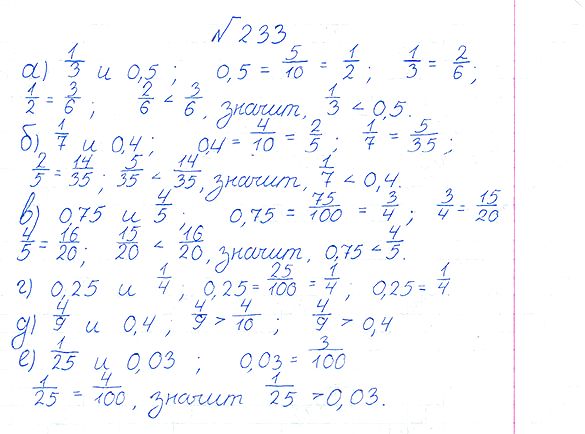 № 233
а) 1/3 и 0,5; 0,5 = 5/10 = 1/2; 1/3 = 2/6;
1/2 = 3/6; 2/6 < 3/6, значит, 1/3 < 0,5.
б) 1/7 и 0,4; 0,4 = 4/10 = 2/5; 1/7 = 5/35;
2/5 = 14/35; 5/35 < 14/35, значит, 1/7 < 0,4.
в) 0,75 и 4/5; 0,75 = 75/100 = 3/4; 3/4 = 15/20
4/5 = 16/20; 15/20 < 16/20, значит, 0,75 < 4/5.
г) 0,25 и 1/4; 0,25 = 25/100 = 1/4; 0,25 = 1/4
д) 4/9 и 0,4; 4/9 > 4/10; 4/9 > 0,4
е) 1/25 и 0,03; 0,03 = 3/100
1/25 = 4/100, значит 1/25 > 0,03.